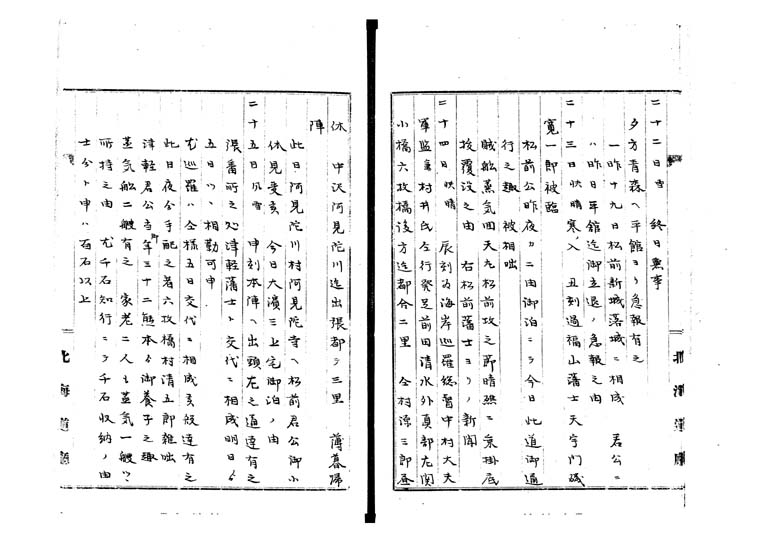 二十二日 雪 終日無事
夕方青森ヘ平館ヨリ急報有之
一昨十九日松前新城落城ニ相成 君公ニ
ハ昨日平館迄御立退ノ急報之由
二十三日 快晴 寒入 丑刻過福山藩士天字門磯
寛一郎被臨
松前公昨夜カニ田御泊ニテ今日此道御通
行之趣被相咄
賊船蒸気回天丸松前攻之節暗礁ニ乗掛底
役覆没之由 右松前藩士ヨリノ新聞
二十四日 快晴 辰刻ヨ海岸巡羅怒誓中村大夫
軍監多村井氏左行発足前田清水外真部左関
小橋六枚橋後方迄都合二里 仝村源三郎昼
休 中沢阿見陀川迄出張都テ三里 薄暮帰
陣
此日阿見陀川村阿見陀寺ヘ松前君公御小
休見受ケ 今日大濱三上宅御泊ノ由
二十五日 風雪 申刻本陣ヘ出頭左之通達有之
濱番所之処津軽藩士ト交代ニ相成明日ゟ
五日ツヽ相勤可申
尤巡羅ハ仝様五日交代ニ相成候段達有之
此日夜分手配之者六枚橋村清五郎雑咄
津軽君公当年三十二熊本ゟ御養子之趣
蒸気船二艘有之 家老二人ゟ蒸気一艘ツヽ
所持之由 尤千石知行ニテ千石収納ノ由
士分ト申ハ百石以上
北海道庁